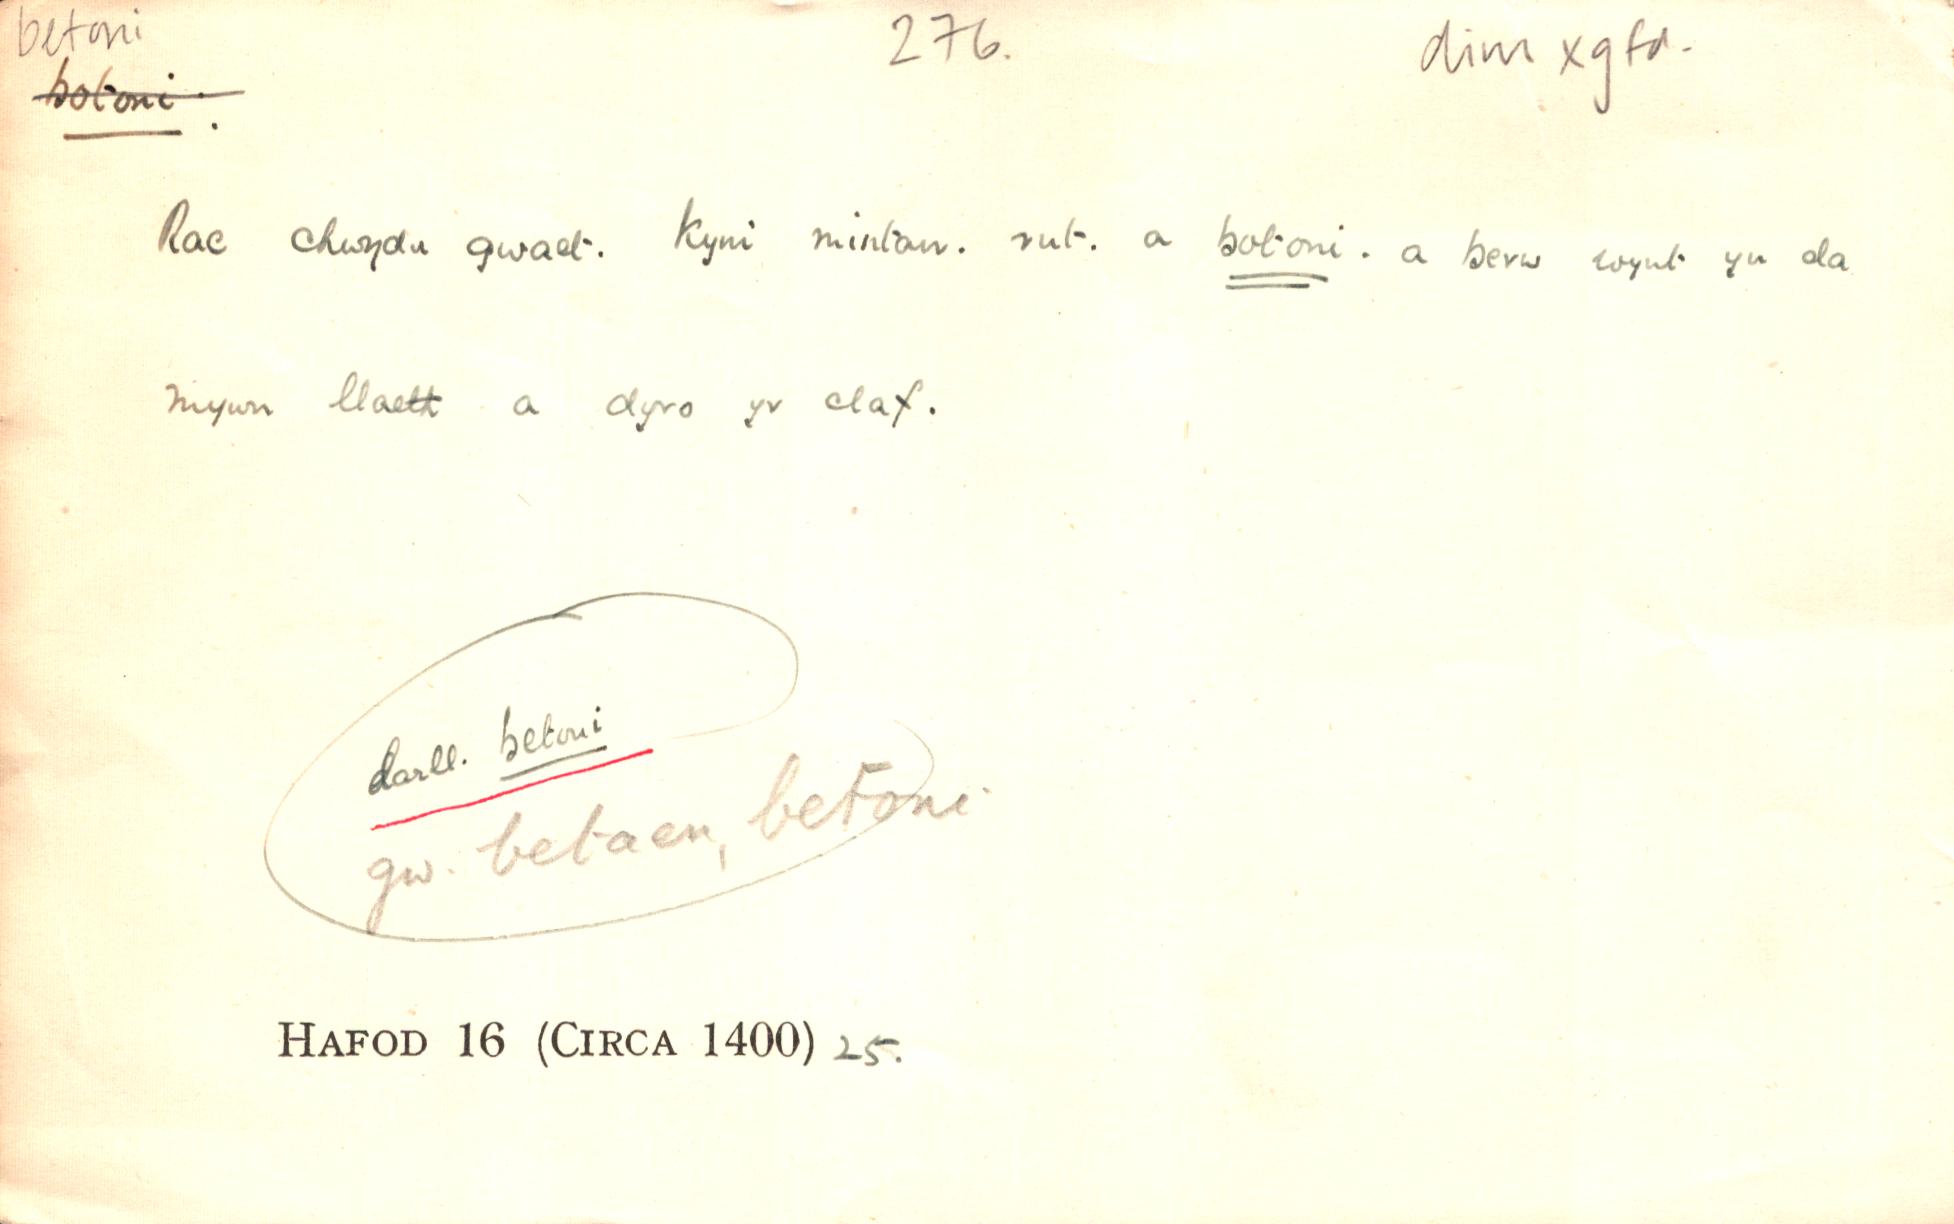 betoni 276. dim xgfd.
botoni.
Rac chwydu gwaet. Kym mintan. rut. a botoni. a berw wynt yn da
mywn llaeth a dyro yr claf.
darll. betoni
gw. betaen, betoni
HAFOD 16 (CIRCA 1400) 25.